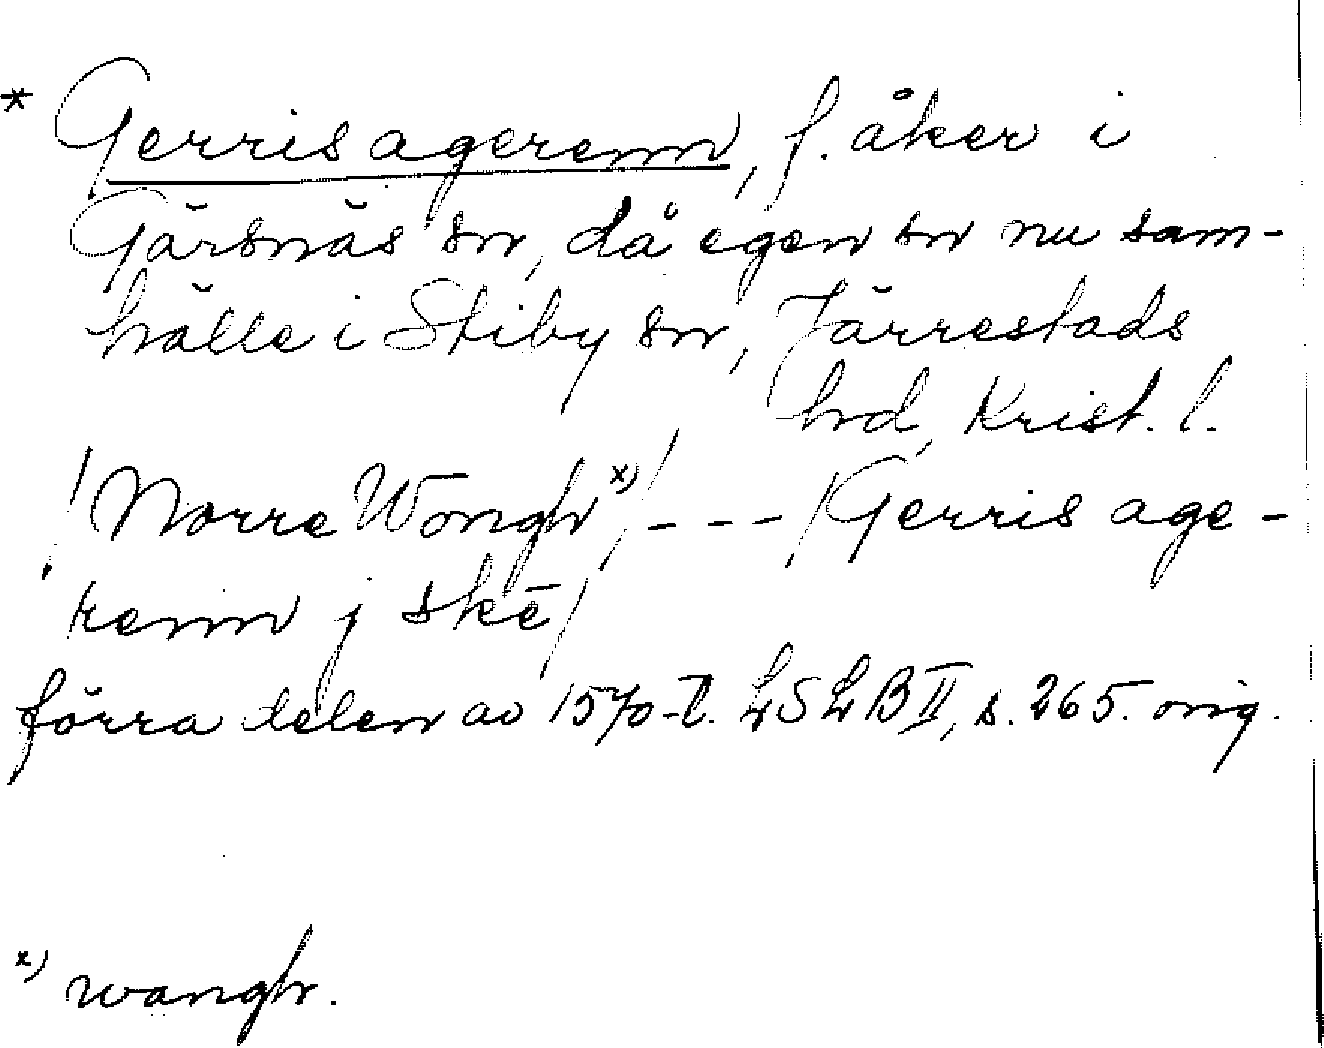 * Gerris agerenn, f. åker i
Gärsnäs sn, då egen sn nu sam-
hälle i Stiby sn, Järrestads
hd, Krist. l.
/Norre Wongh x)/ - - - /Gerris age-
renn j skē/
förra delen av 1570-t. LSLB II, s. 265. orig.
x) wangh.